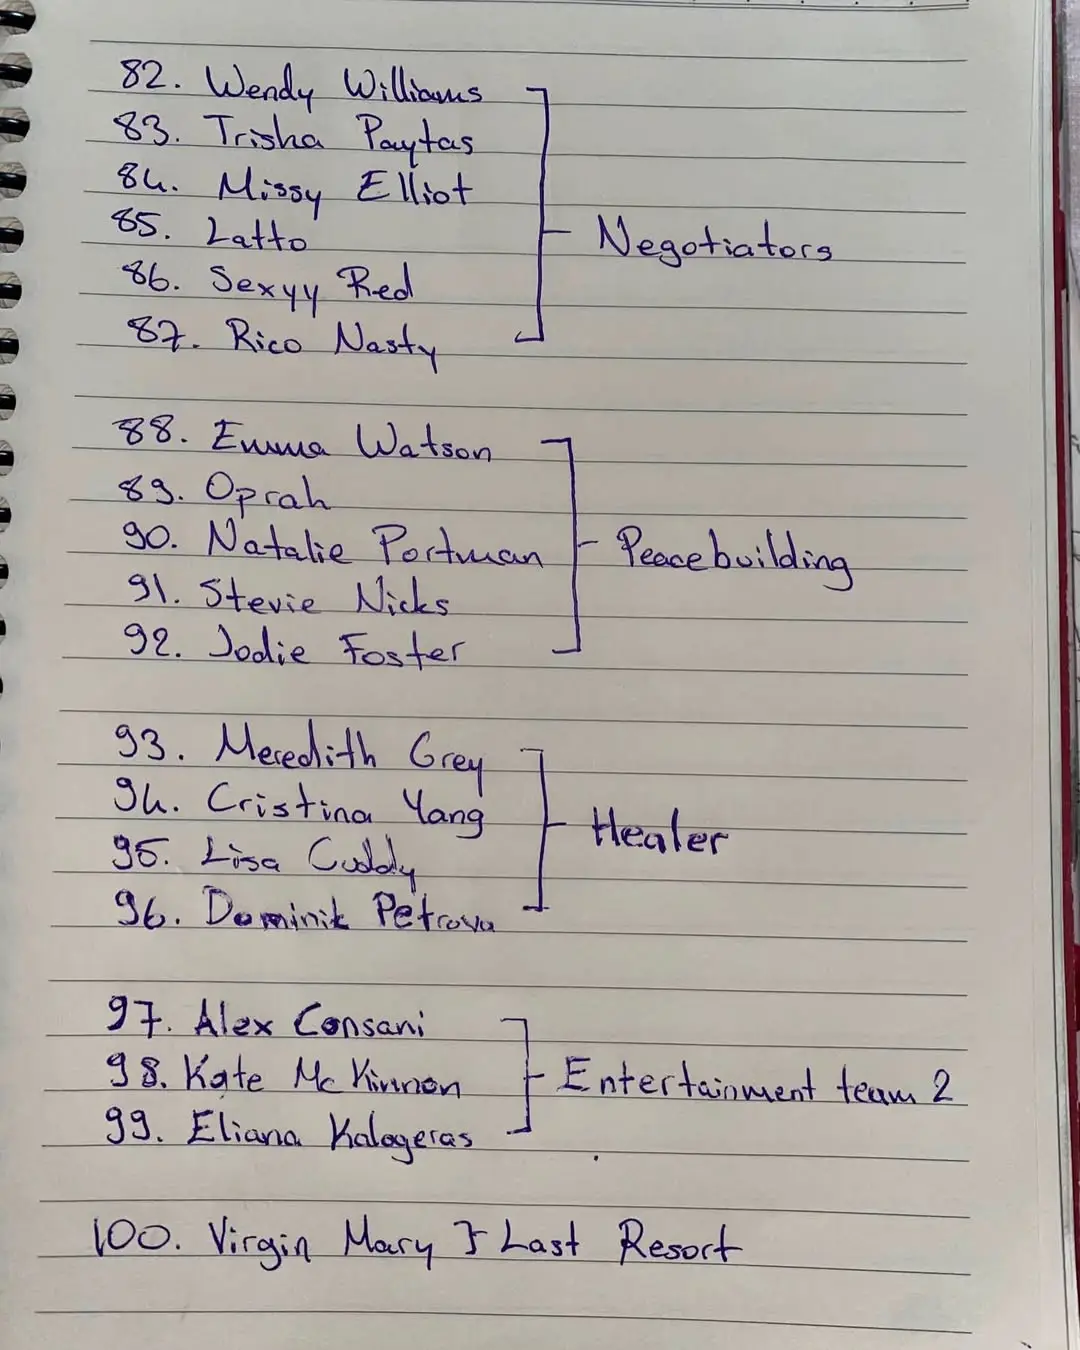 82. Wendy Williams
83. Trisha Paytas
84. Missy Elliot
85. Latto
86. Sexyy Red
87. Rico Nasty
Negotiators
88. Emma Watson
89. Oprah
90. Natalie Portman
91. Stevie Nicks
92. Jodie Foster
Peacebuilding
93. Meredith Grey
94. Cristina Yang
95. Lisa Cuddy
96. Dominik Petrova
Healer
97. Alex Consani
98. Kate McKinnon
99. Eliana Kalogeras
Entertainment team 2
100. Virgin Mary } Last Resort